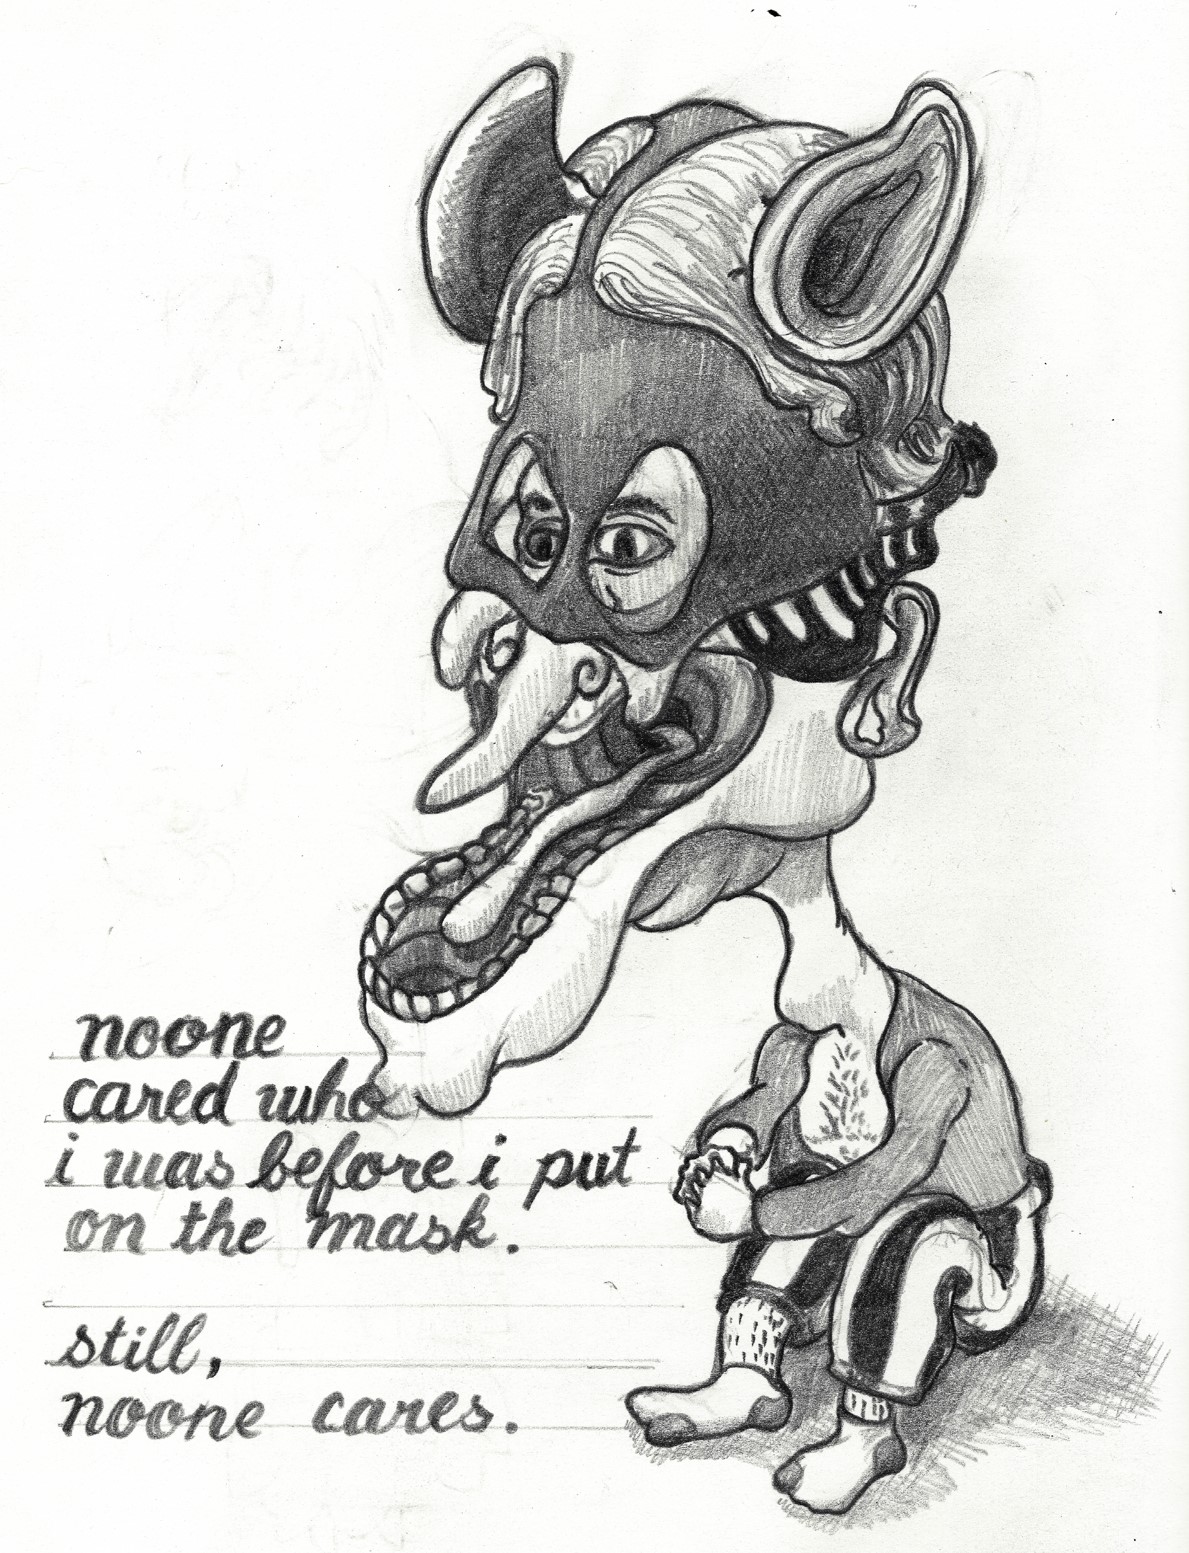 noone
cared who
i was before i put
on the mask.
still,
noone cares.